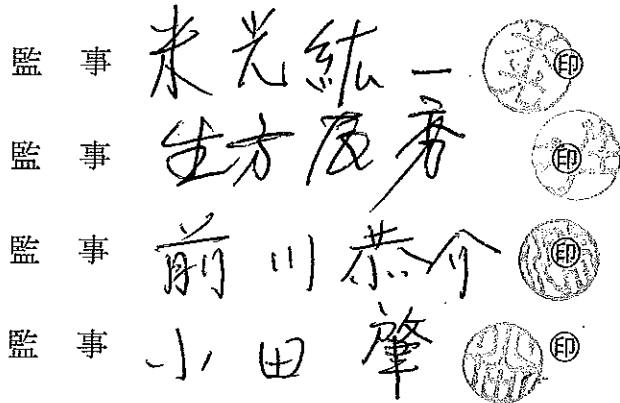 監事 米光紘一 ㊞
監事 生方 ㊞
監事 前川恭介 ㊞
監事 小田肇 ㊞